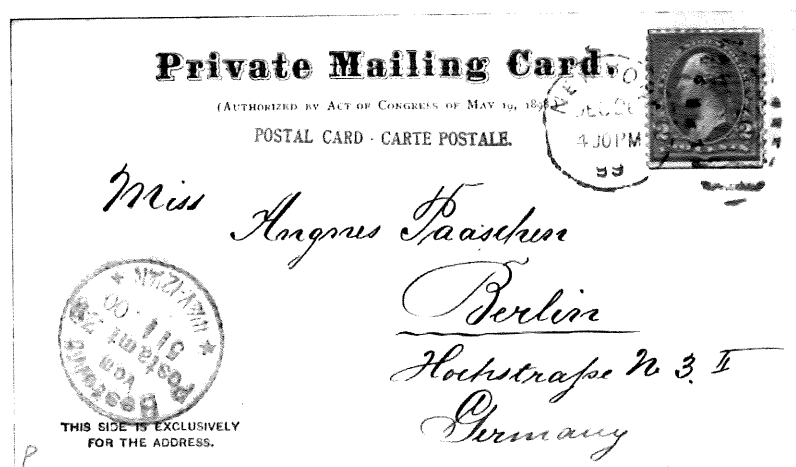 Private Mailing Card.
(AUTHORIZED BY ACT OF CONGRESS OF MAY 19, 1898)
POSTAL CARD - CARTE POSTALE.
NEW YO
DEC 26
4 30 PM
99
Miss
Angnes Paaschen
Berlin
Hochstraße N 3. II
Germany
Bestellt
vom
Postamt
5/1 00
THIS SIDE IS EXCLUSIVELY
FOR THE ADDRESS.
P